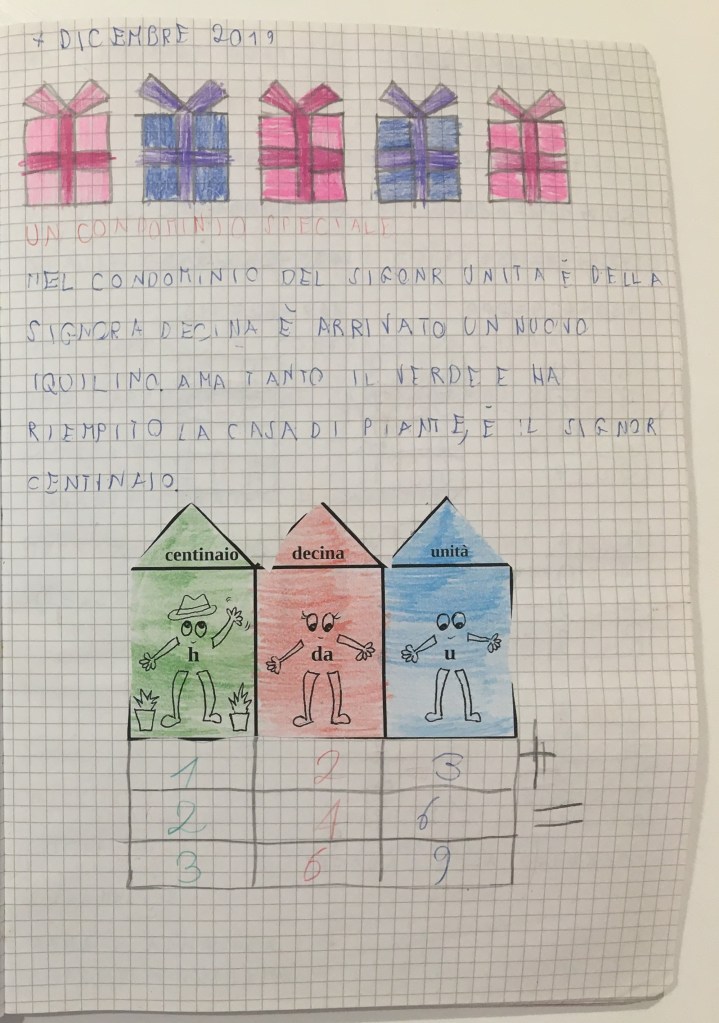 7 DICEMBRE 2019
UN CONDOMINIO SPECIALE
NEL CONDOMINIO DEL SIGONR UNITA È DELLA
SIGNORA DECINA È ARRIVATO UN NUOVO
IQUILINO. AMA TANTO IL VERDE E HA
RIEMPITO LA CASA DI PIANTE, È IL SIGNOR
CENTINAIO.
centinaio decina unità
h da u
1 2 3 +
2 4 6 =
3 6 9